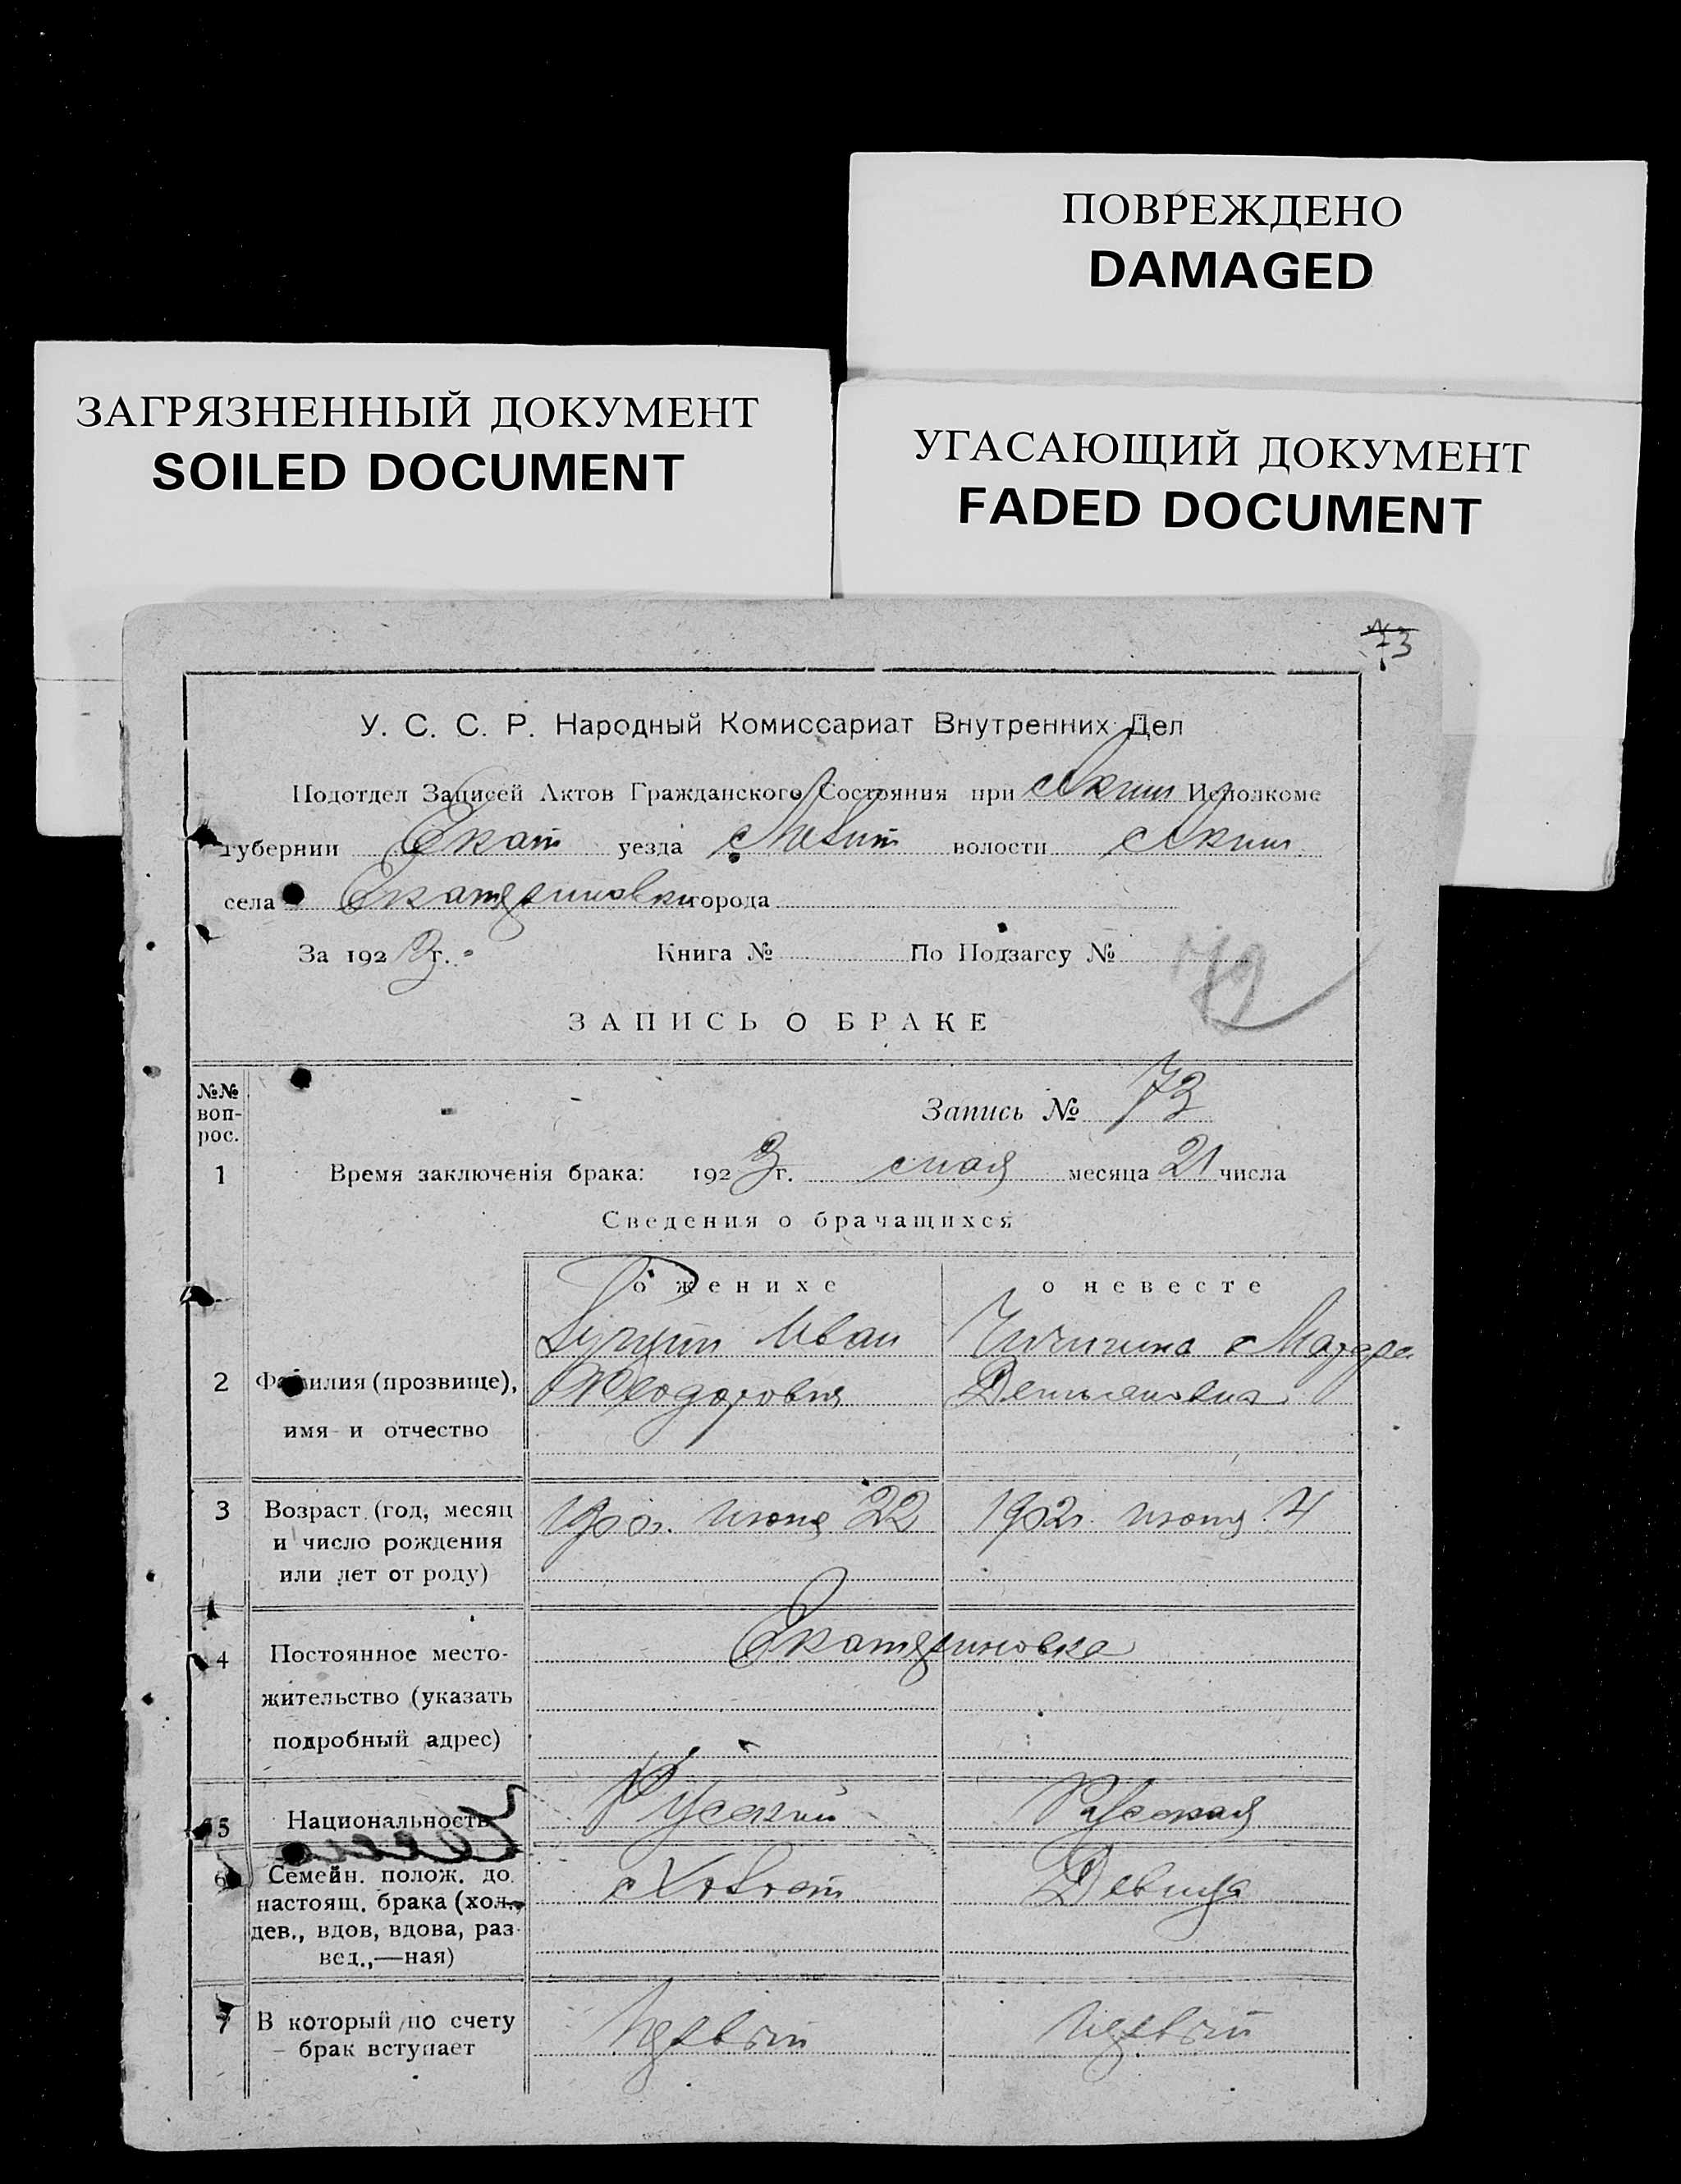 ПОВРЕЖДЕНО
DAMAGED
ЗАГРЯЗНЕННЫЙ ДОКУМЕНТ
SOILED DOCUMENT
УГАСАЮЩИЙ ДОКУМЕНТ
FADED DOCUMENT
73
У. С. С. Р. Народный Комиссариат Внутренних Дел
Подотдел Записей Актов Гражданского Состояния при Аким Исполкоме
губернии Екат уезда Мелит волости Аким
села Екатериновки города
За 1923 г. Книга № По Подзагсу №
72
ЗАПИСЬ О БРАКЕ
№№ воп-рос.
Запись № 73
1 Время заключенія брака: 1923 г. мая месяца 21 числа
Сведения о брачащихся
о женихе о невесте
2 Фамилия (прозвище), имя и отчество
Иван
Феодорович
Чичигина Марфа
Демьяновна
3 Возраст (год, месяц и число рождения или лет от роду)
1900 г. июня 22
1902 г. июня 4
4 Постоянное место-жительство (указать подробный адрес)
Екатериновка
5 Национальность
Русский
Русская
6 Семейн. полож. до настоящ. брака (хол., дев., вдов, вдова, раз-вед.,—ная)
Холост
Девица
7 В который по счету брак вступает
Первый
Первый